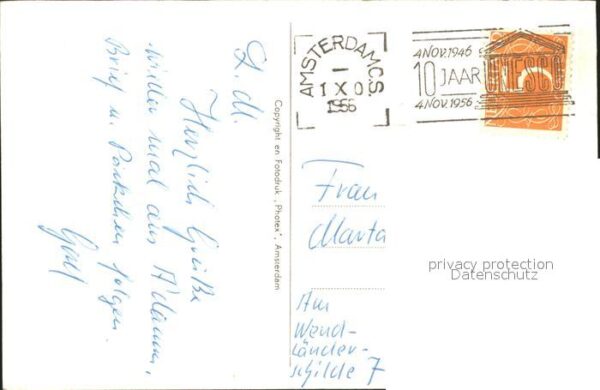 L. M.
Herzliche Grüße
wieder mal aus A'dam,
Brief u. Päckchen folgen.
Copyright en Fotodruk „Photex", Amsterdam
AMSTERDAM C.S.
1 X 0
1956
4 NOV. 1946
10 JAAR UNESCO
4 NOV. 1956
5
Frau
Marta
Am
Wend-
länder-
schilde 7
privacy protection
Datenschutz